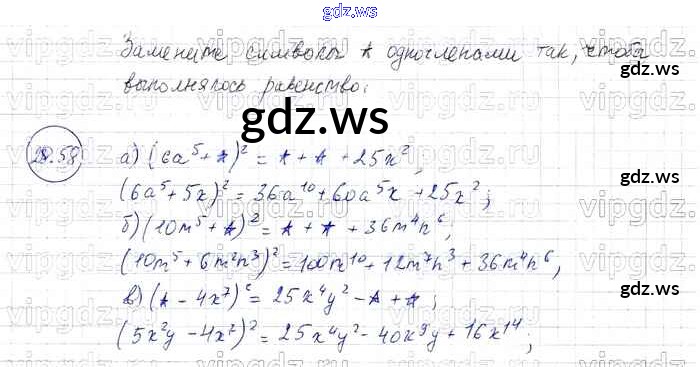 gdz.ws
Замените символы * одночленами так, чтобы
выполнялось равенство:
gdz.ws
28.58 а) (6a⁵ + *)² = * + * + 25x²,
(6a⁵ + 5x)² = 36a¹⁰ + 60a⁵x + 25x²;
б) (10m⁵ + *)² = * + * + 36m⁴n⁶,
(10m⁵ + 6m²n³)² = 100m¹⁰ + 12m⁷n³ + 36m⁴n⁶,
в) (* - 4x⁷)² = 25x⁴y² - * + *;
(5x²y - 4x⁷)² = 25x⁴y² - 40x⁹y + 16x¹⁴;